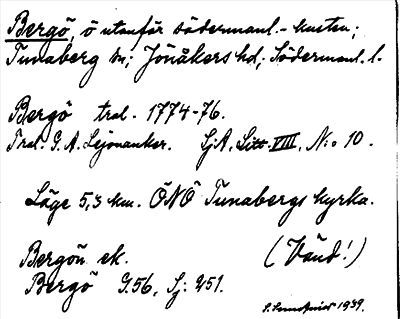 Bergö, ö utanför södermanl.-kusten;
Tunaberg sn; Jönåkers hd; Södermanl. l.
Bergö tral. 1774-76.
Tral. G. A. Lejonanker. SjA, Litt. VIII, N:o 10.
Läge 5,3 km. ÖNÖ Tunabergs kyrka.
Bergön ek. (Vänd!)
Bergö G.56, Sj: 251.
S. 1939.